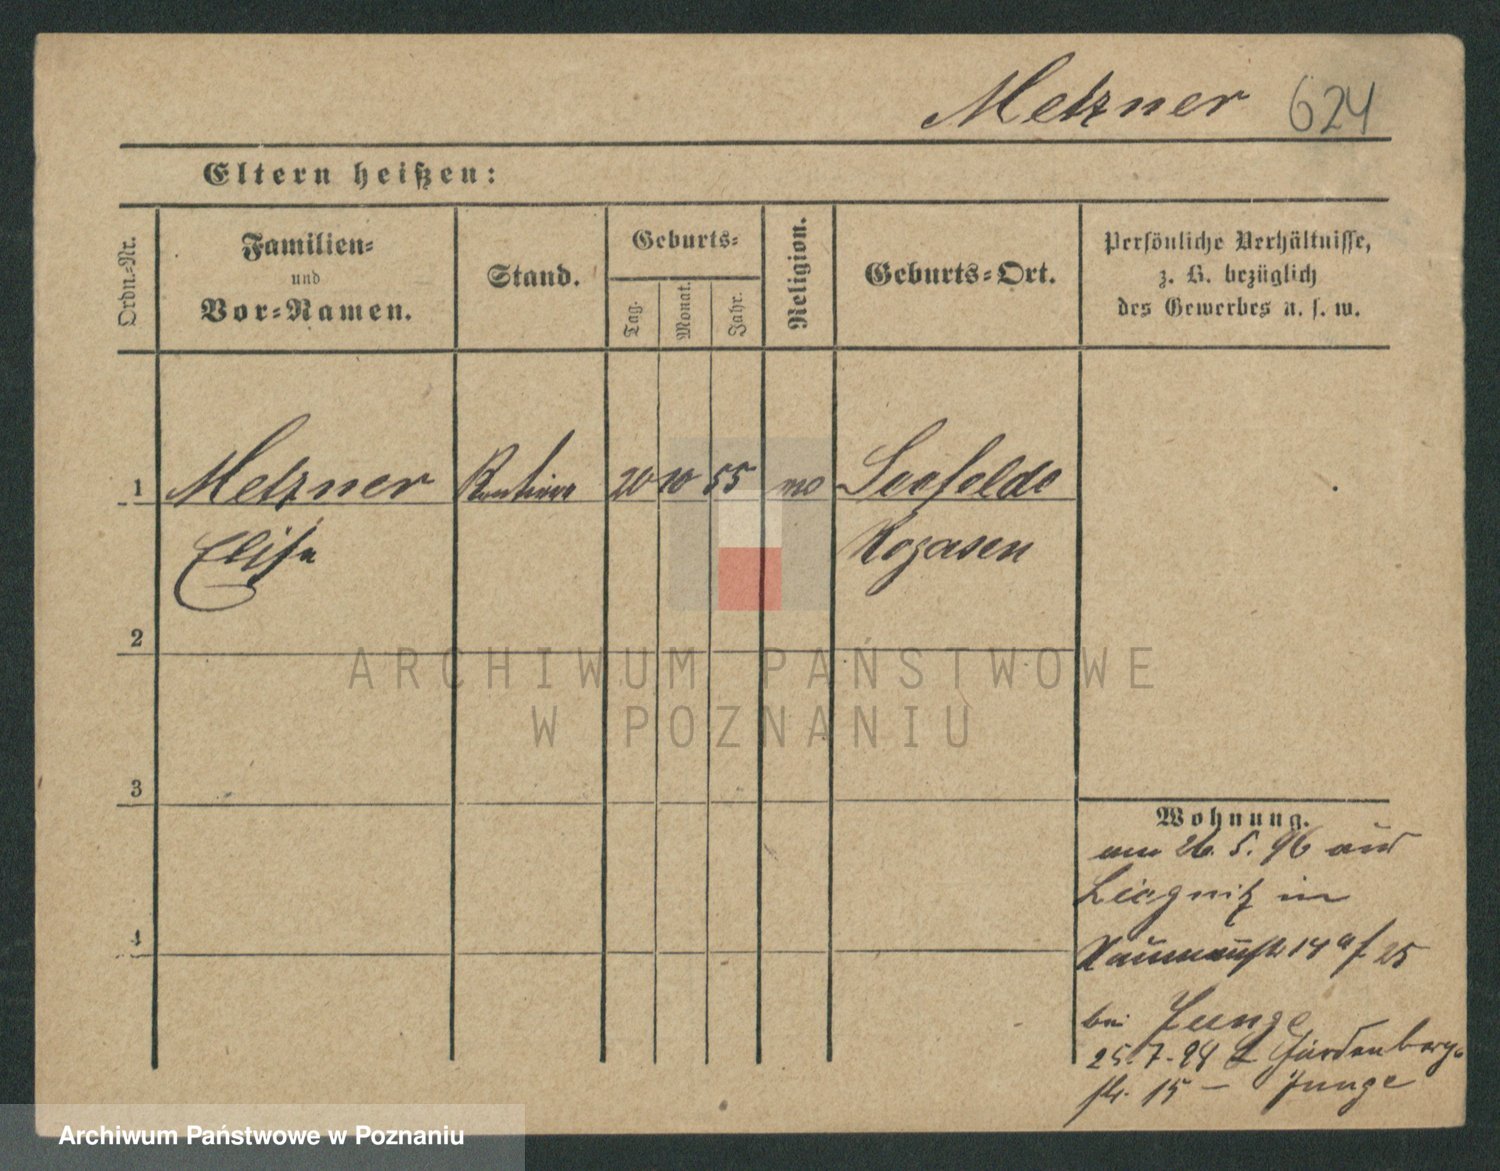 Metzner 624
Eltern heißen:
Ordn.-Nr.
Familien-
und
Vor-Namen.
Stand.
Geburts-
Tag.
Monat.
Jahr.
Religion.
Geburts-Ort.
Persönliche Verhältnisse,
z. B. bezüglich
des Gewerbes u. s. w.
1 Metzner 20 10 55 Seefelde
Elise Rogasen
2
ARCHIWUM PAŃSTWOWE
W POZNANIU
3
Wohnung.
26. 5. 96 aus
Liegnitz in
Naumannstr 14a f 25
bei Junge
25. 7. 98 Gardenberg-
str. 15 – Junge
4
Archiwum Państwowe w Poznaniu